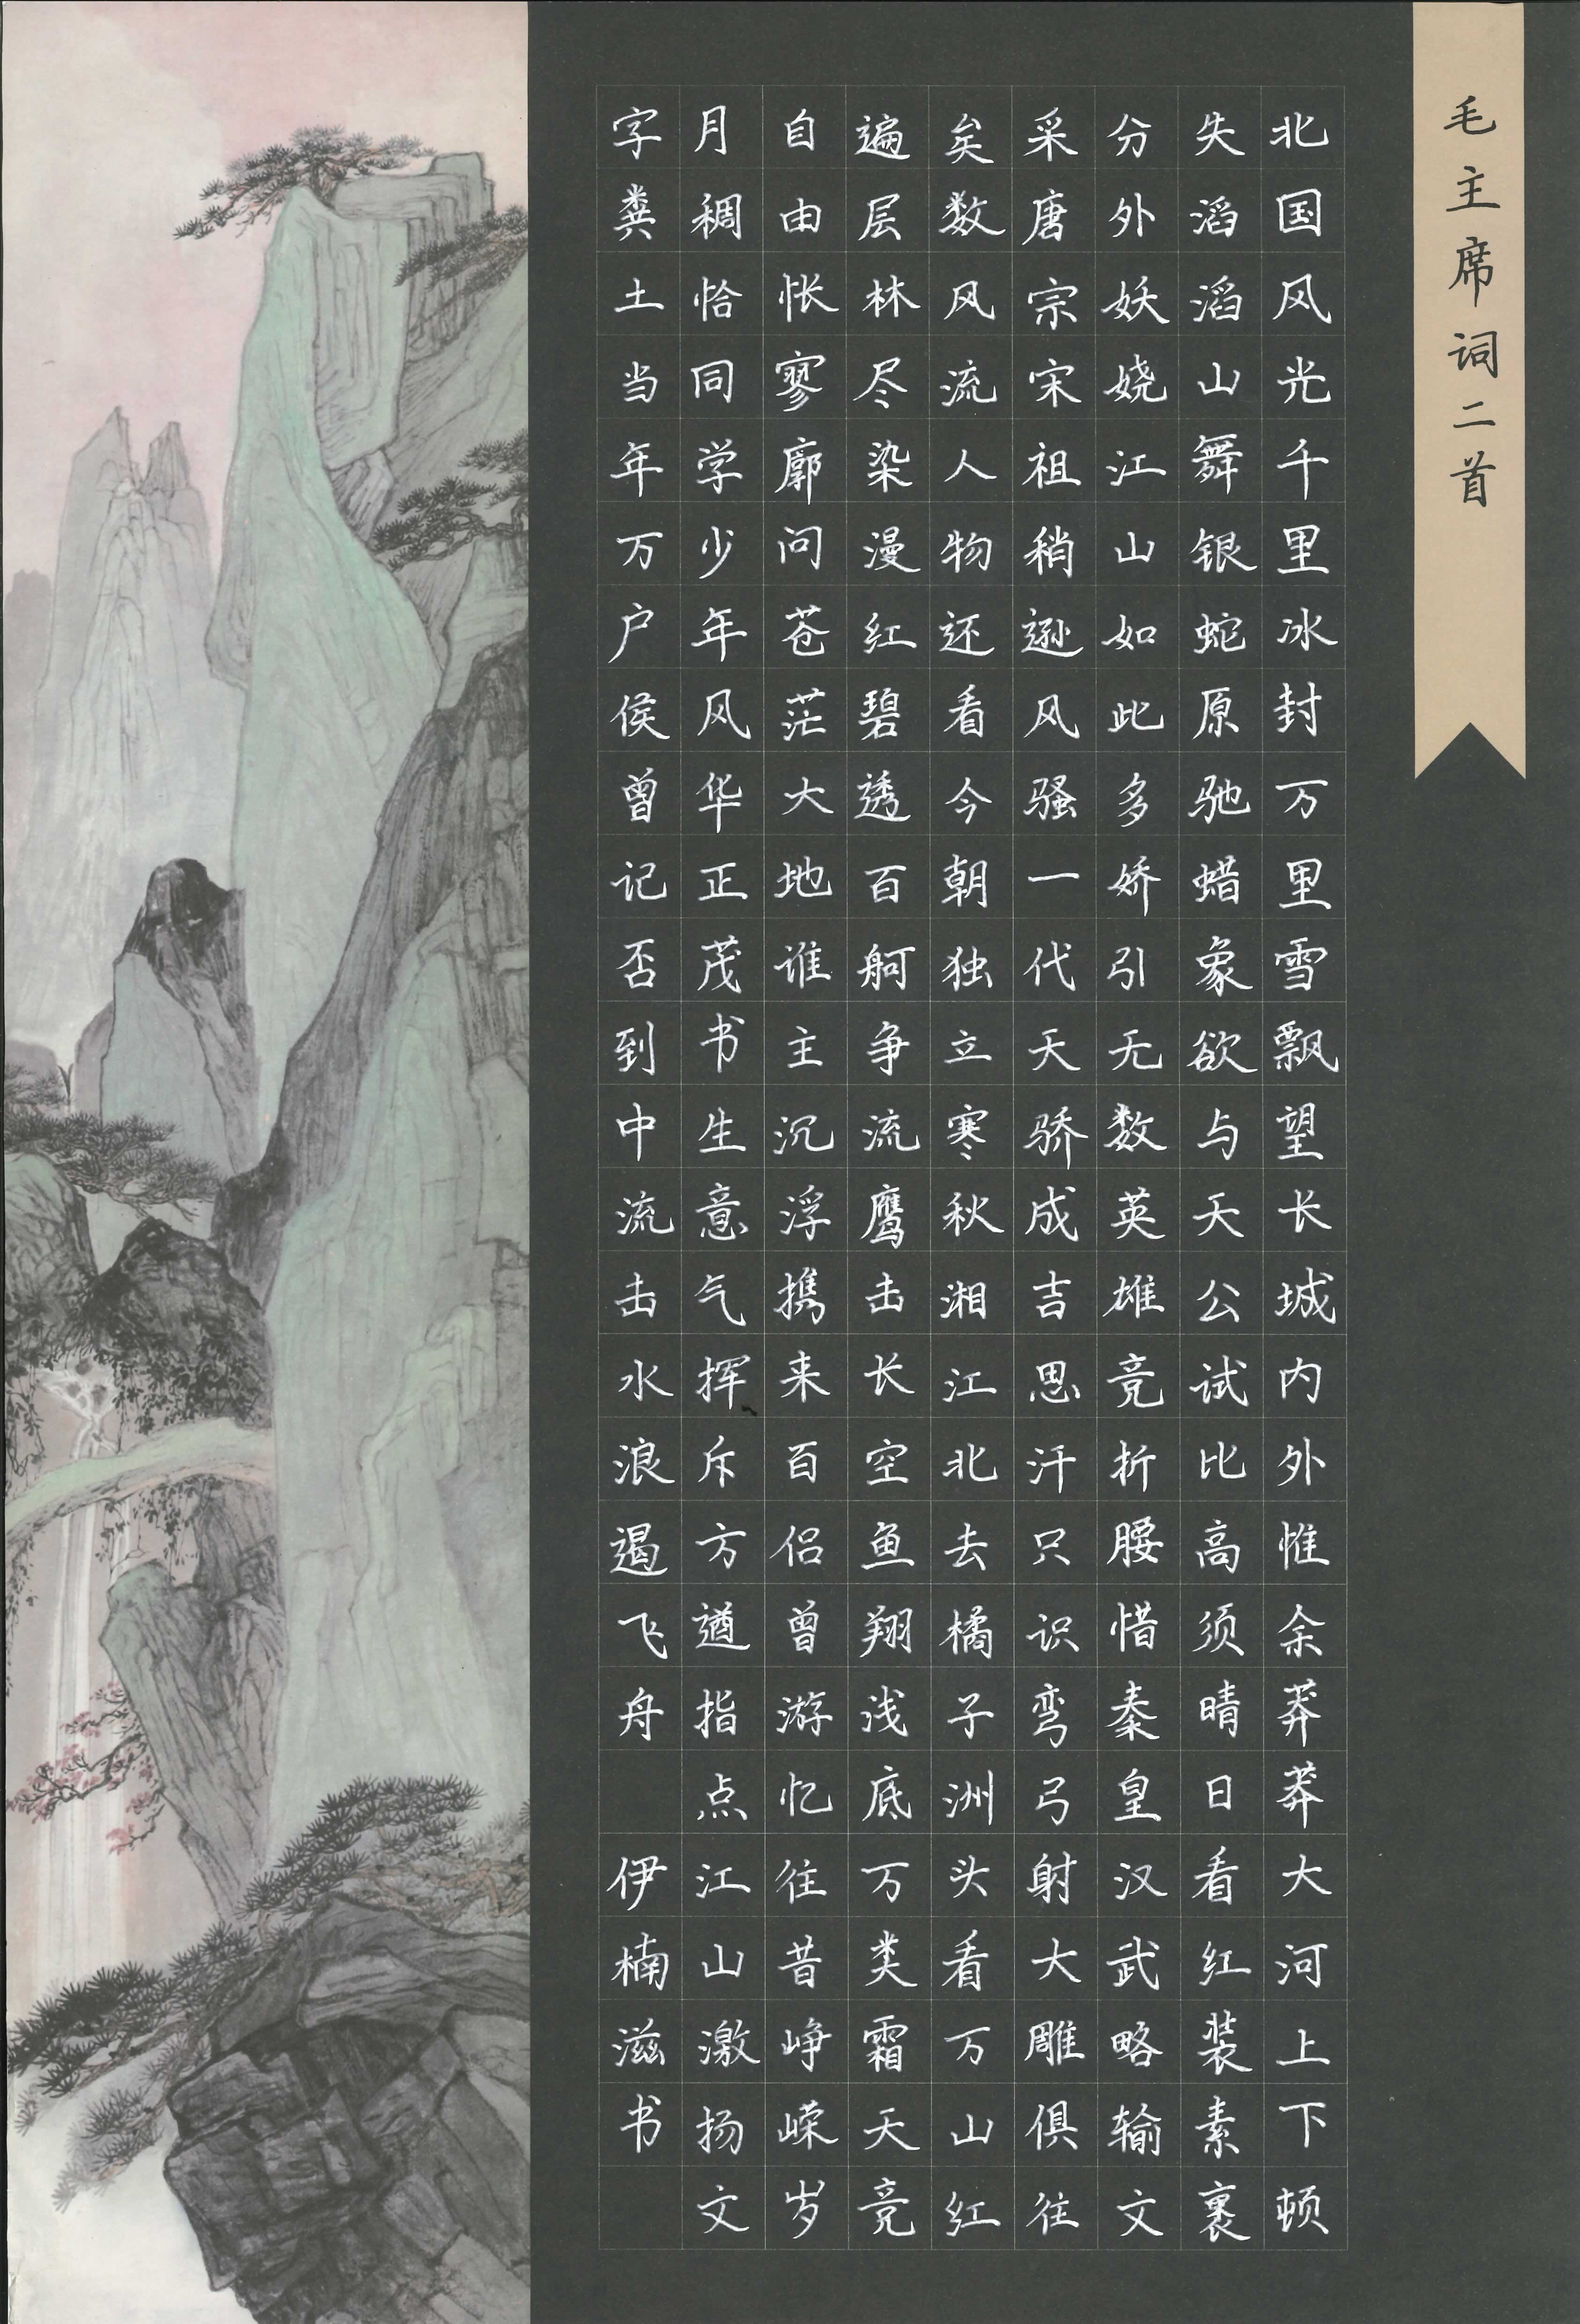 毛主席词二首
北国风光千里冰封万里雪飘望长城内外惟余莽莽大河上下顿
失滔滔山舞银蛇原驰蜡象欲与天公试比高须晴日看红装素裹
分外妖娆江山如此多娇引无数英雄竞折腰惜秦皇汉武略输文
采唐宗宋祖稍逊风骚一代天骄成吉思汗只识弯弓射大雕俱往
矣数风流人物还看今朝独立寒秋湘江北去橘子洲头看万山红
遍层林尽染漫红碧透百舸争流鹰击长空鱼翔浅底万类霜天竞
自由怅寥廓问苍茫大地谁主沉浮携来百侣曾游忆往昔峥嵘岁
月稠恰同学少年风华正茂书生意气挥斥方遒指点江山激扬文
字粪土当年万户侯曾记否到中流击水浪遏飞舟 伊楠滋书